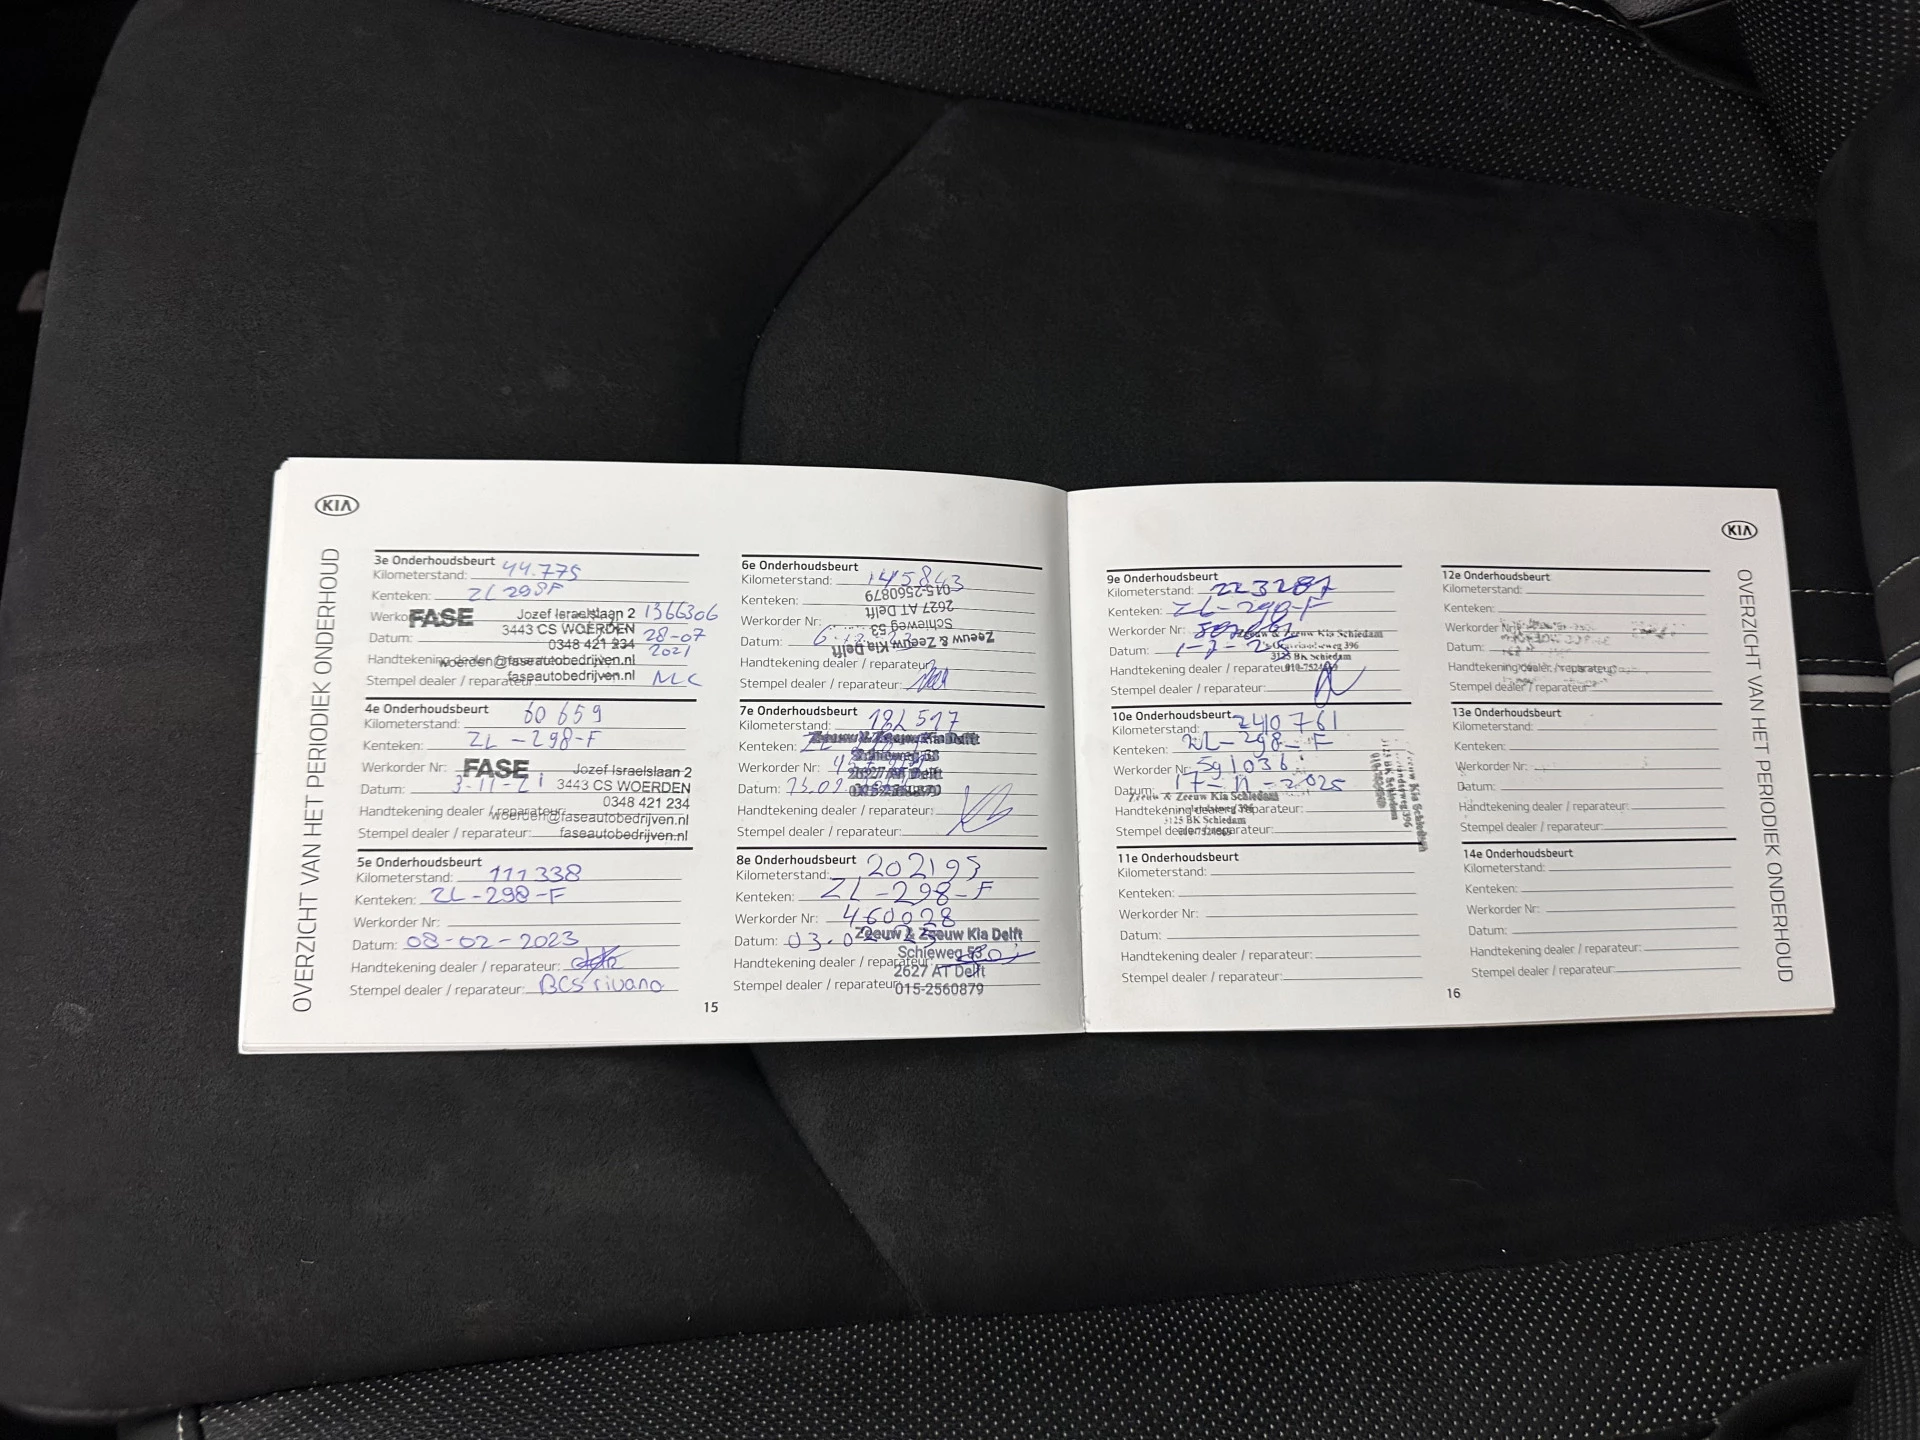 KIA
OVERZICHT VAN HET PERIODIEK ONDERHOUD
3e Onderhoudsbeurt
Kilometerstand: 44.775
Kenteken: ZL 298F
FASE Jozef Israelslaan 2 1366306
3443 CS WOERDEN
Datum: 0348 421 234 28-07
2021
Handtekening woerden@faseautobedrijven.nl
Stempel dealer / reparateur: faseautobedrijven.nl MC
4e Onderhoudsbeurt
Kilometerstand: 60659
Kenteken: ZL-298-F
Werkorder Nr: FASE Jozef Israelslaan 2
Datum: 3-11-21 3443 CS WOERDEN
0348 421 234
Handtekening dealer / reparateur: woerden@faseautobedrijven.nl
Stempel dealer / reparateur: faseautobedrijven.nl
5e Onderhoudsbeurt
Kilometerstand: 111338
Kenteken: ZL-298-F
Werkorder Nr:
Datum: 08-02-2023
Handtekening dealer / reparateur:
Stempel dealer / reparateur: BCS rivano
6e Onderhoudsbeurt
Kilometerstand: 145843
Kenteken:
Werkorder Nr:
Datum:
Handtekening dealer / reparateur:
Stempel dealer / reparateur:
Zeeuw & Zeeuw Kia Delft
Schieweg 53
2627 AT Delft
015-2560879
7e Onderhoudsbeurt
Kilometerstand: 182517
Kenteken:
Zeeuw & Zeeuw Kia Delft
Schieweg 53
Werkorder Nr:
2627 AT Delft
Datum:
015-2560879
Handtekening dealer / reparateur:
Stempel dealer / reparateur:
8e Onderhoudsbeurt
Kilometerstand: 202193
Kenteken: ZL-298-F
Werkorder Nr: 460028
Datum: Zeeuw & Zeeuw Kia Delft
Schieweg 53
Handtekening dealer / reparateur:
2627 AT Delft
Stempel dealer / reparateur: 015-2560879
15
KIA
OVERZICHT VAN HET PERIODIEK ONDERHOUD
9e Onderhoudsbeurt
Kilometerstand: 223287
Kenteken: ZL-298-F
Werkorder Nr: Zeeuw & Zeeuw Kia Schiedam
Datum:
3125 BK Schiedam
Handtekening dealer / reparateur:
Stempel dealer / reparateur:
10e Onderhoudsbeurt
Kilometerstand: 240761
Kenteken: ZL-298-F
Werkorder Nr: 591036
Datum: 17-11-2025
Zeeuw & Zeeuw Kia Schiedam
Handtekening dealer / reparateur:
3125 BK Schiedam
Stempel dealer / reparateur:
11e Onderhoudsbeurt
Kilometerstand:
Kenteken:
Werkorder Nr:
Datum:
Handtekening dealer / reparateur:
Stempel dealer / reparateur:
12e Onderhoudsbeurt
Kilometerstand:
Kenteken:
Werkorder Nr:
Datum:
Handtekening dealer / reparateur:
Stempel dealer / reparateur:
13e Onderhoudsbeurt
Kilometerstand:
Kenteken:
Werkorder Nr:
Datum:
Handtekening dealer / reparateur:
Stempel dealer / reparateur:
14e Onderhoudsbeurt
Kilometerstand:
Kenteken:
Werkorder Nr:
Datum:
Handtekening dealer / reparateur:
Stempel dealer / reparateur:
16